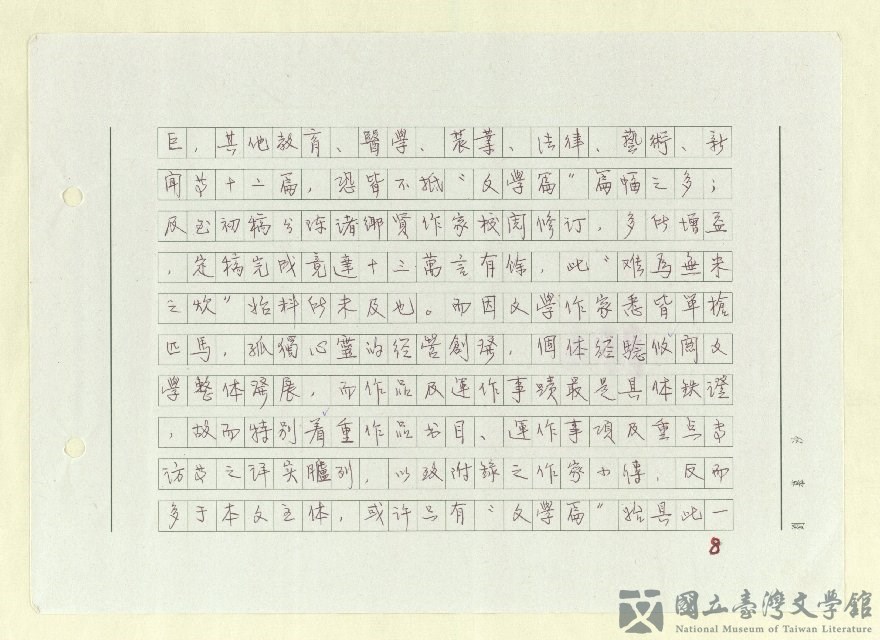 巨，其他教育、醫學、農業、法律、藝術、新
聞等十二篇，恐皆不抵“文學篇”篇幅之多；
及至初稿分陈诸鄉賢作家校閲修订，多所增益
，定稿完成竟達十三萬言有餘，此“难為無米
之炊”始料所未及也。而因文學作家悉皆單槍
匹馬，孤獨心靈的经營創發，個体经驗攸関文
學整体發展，而作品及運作事蹟最是具体铁證
，故而特别着重作品书目、運作事項及重点専
访等之详实臚列，以致附錄之作家小傳，反而
多于本文主体，或许只有“文學篇”始具此一
8
國立臺灣文學館
National Museum of Taiwan Literature